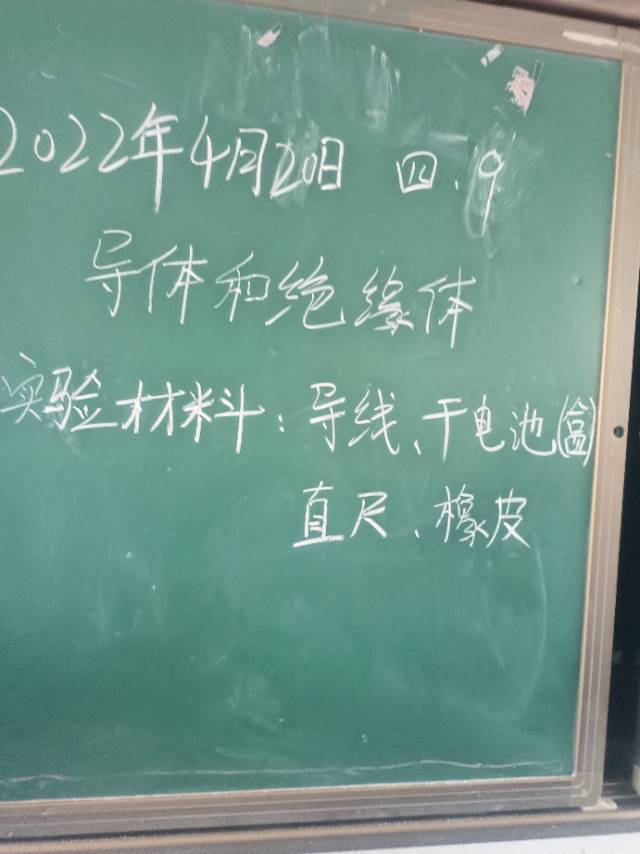 2022年4月20日 四.9
导体和绝缘体
实验材料:导线、干电池(盒)
直尺、橡皮